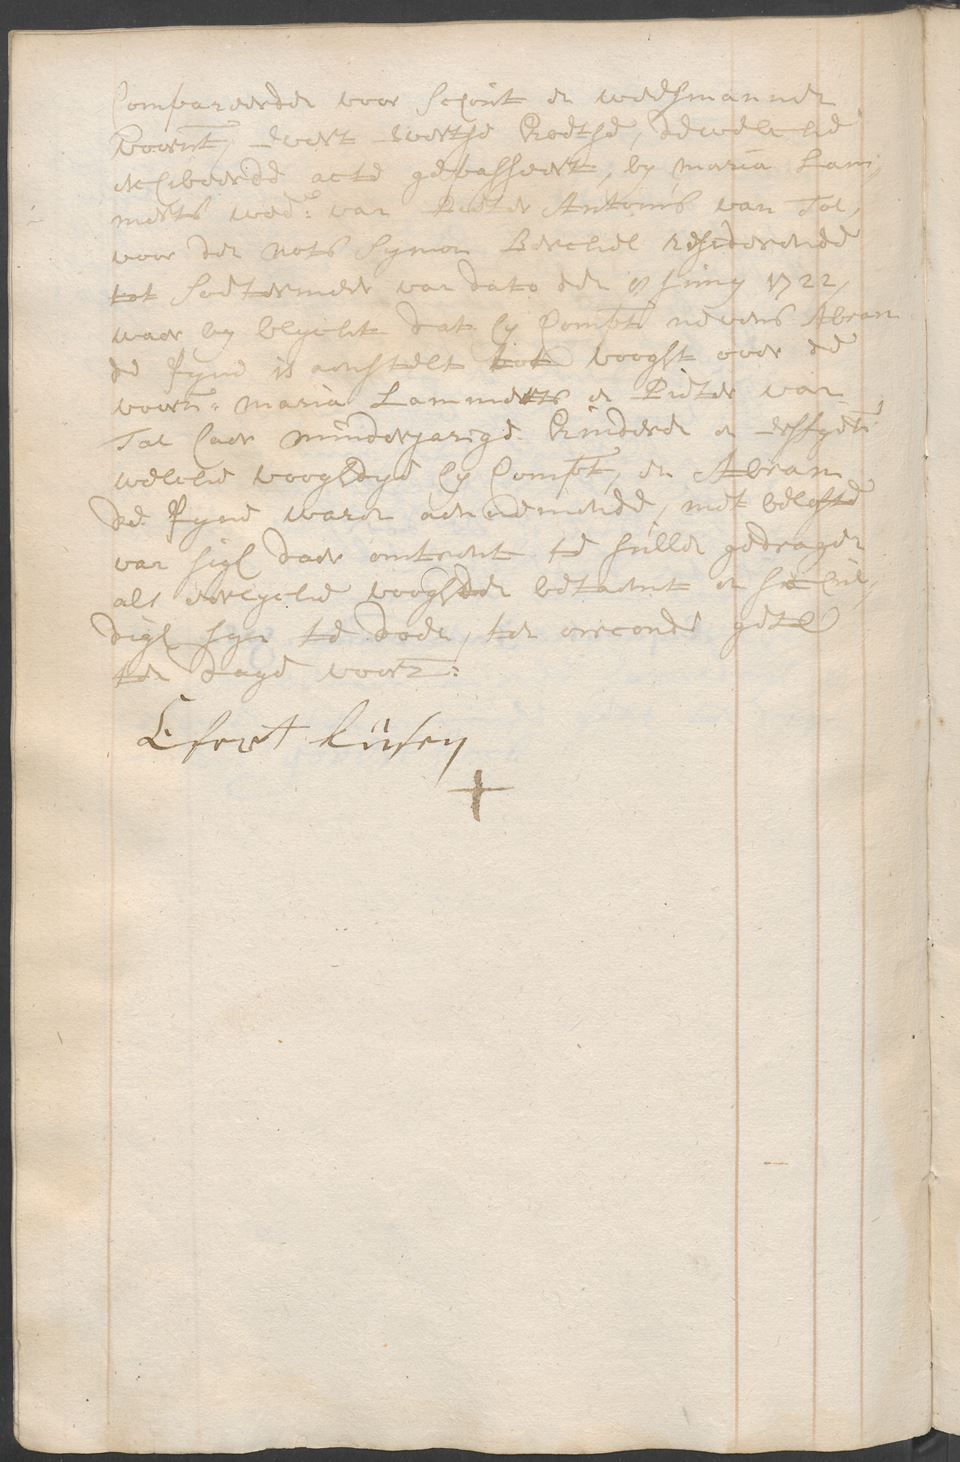 Compareerde voor Schout en Weesmannen
Voornt, Evert Evertse Roetse, dewelcke
exhibeerde acte gepasseert, by Maria Lam,
merts wede: van Pieter Antonis van Tol,
voor den Nots Symon Berckel residerende
tot Soetermeer van dato den 9 Juny 1722,
waer by blyckt dat hy Compt nevens Abram
de Pyne is aenstelt tot vooght over de
voorn: Maria Lammerts en Pieter van
Tol haer minderjarige Kinderen en
welcke voogdye hy Compt, en Abram
de Pyne waren aennemende, met belofte
van sigh daer omtrent te sullen gedragen
als eerlycke vooghden betaemt en schul,
digh syn te doen, ten oirconde geteh
ten dage voorn:
Efert
+